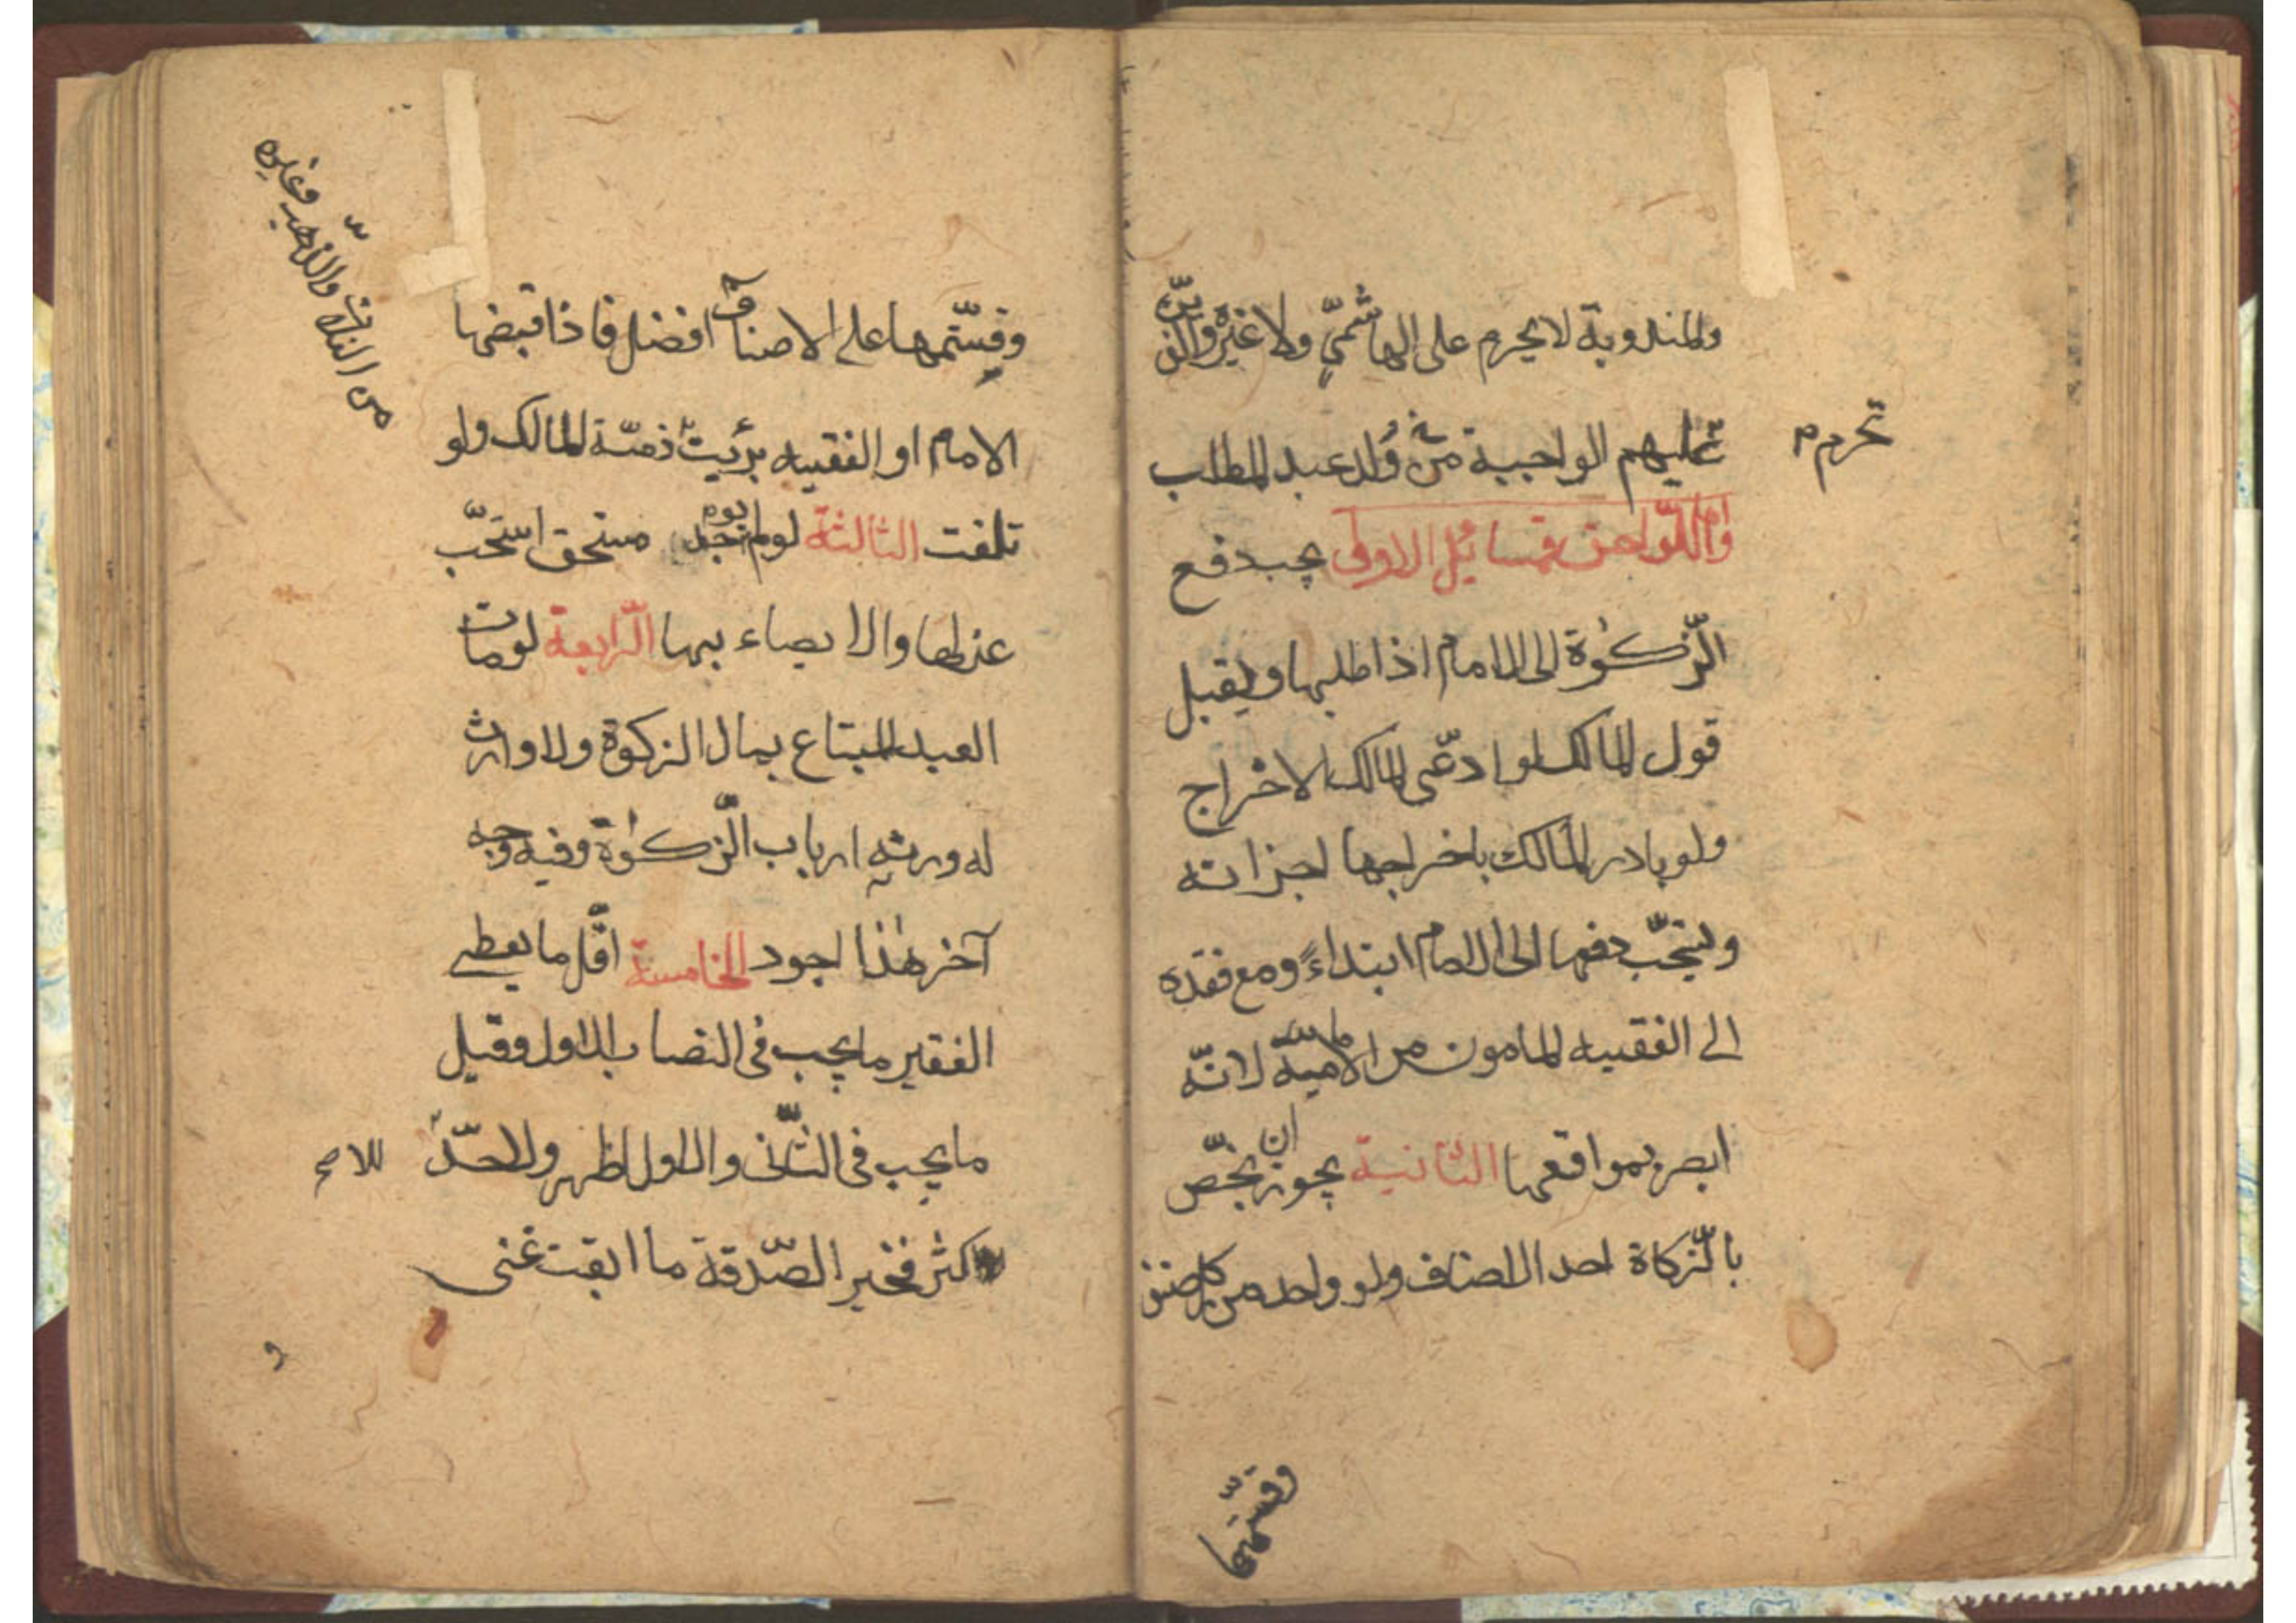 والمندوبة لا يحرم على الهاشميّ ولا غيره والذين
تحرم
عليهم الواجبة من وُلد عبد المطلب
وامّا اللّواحق فمسائل الاولى يجب دفع
الزّكوٰة الى الامام اذا طلبها ويقبل
قول المالك لو ادّعى المالك الاخراج
ولو بادر المالك باخراجها اجزاته
ويستحبّ دفعها الى الامام ابتداءً ومع فقده
الى الفقيه المامون من الاماميّة لانّه
ابصر بمواقعها الثانية يجوز ان يخصّ
بالزّكاة احد الاصناف ولو واحد من كل صنف
وقسّمها
من الذهب وغيره
وقسّمها على الاصناف افضل فاذا قبضها
الامام او الفقيه برئت ذمّة المالك ولو
تلفت الثالثة لو لم يوجد مستحق استحبّ
عزلها والايصاء بها الرّابعة لو مات
العبد المبتاع بمال الزكوة ولا وارث
له ورثه ارباب الزّكوٰة وفيه وجه
آخر هٰذا اجود الخامسة اقّل ما يعطى
الفقير ما يجب فى النصاب الاول وقيل
ما يجب فى الثّانى والاول اظهر ولا حدّ
للا
كثر فخير الصّدقة ما ابقت غنى